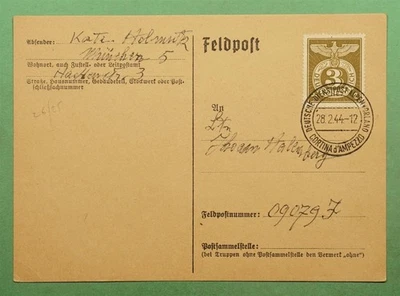 Absender: Kate Helmritz
München 5
Wohnort, auch Zustell- oder Leitpostamt
3
Straße, Hausnummer, Gebäudeteil, Stockwerk oder Post-
schließfachnummer
Feldpost
3
DEUTSCHE DIENSTPOST ALPENVORLAND
28.2.44-12
CORTINA d'AMPEZZO
An
Ltn
Feldpostnummer: 09079 F
Postsammelstelle:
(bei Truppen ohne Postsammelstelle den Vermerk „ohne“)